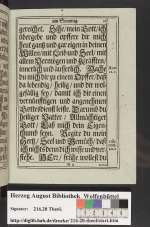 am Sonntag.
gereichet. Siehe, mein Gott, ich
übergebe und opffere dir mich
heut gantz und gar eigen in deinen
Willen, mit Leib und Seel, mit
allem Vermögen und Kräfften,
innerlich und äusserlich. Mache
du mich dir zu einem Opffer, das
da lebendig, heilig, und dir wol-
gefällig sey, damit ich dir einen
vernünfftigen und angenehmen
Gottesdienst leiste. Darum du
heiliger Vatter, Allmächtiger
Gott, laß mich dein Eigen-
thum seyn. Regiere du mein
Hertz, Seel und
verstehe. HErr, frühe wollest du
Herzog August Bibliothek Wolfenbüttel
Signatur: 216.28 Theol.
http://diglib.hab.de/drucke/216-28-theol/start.htm